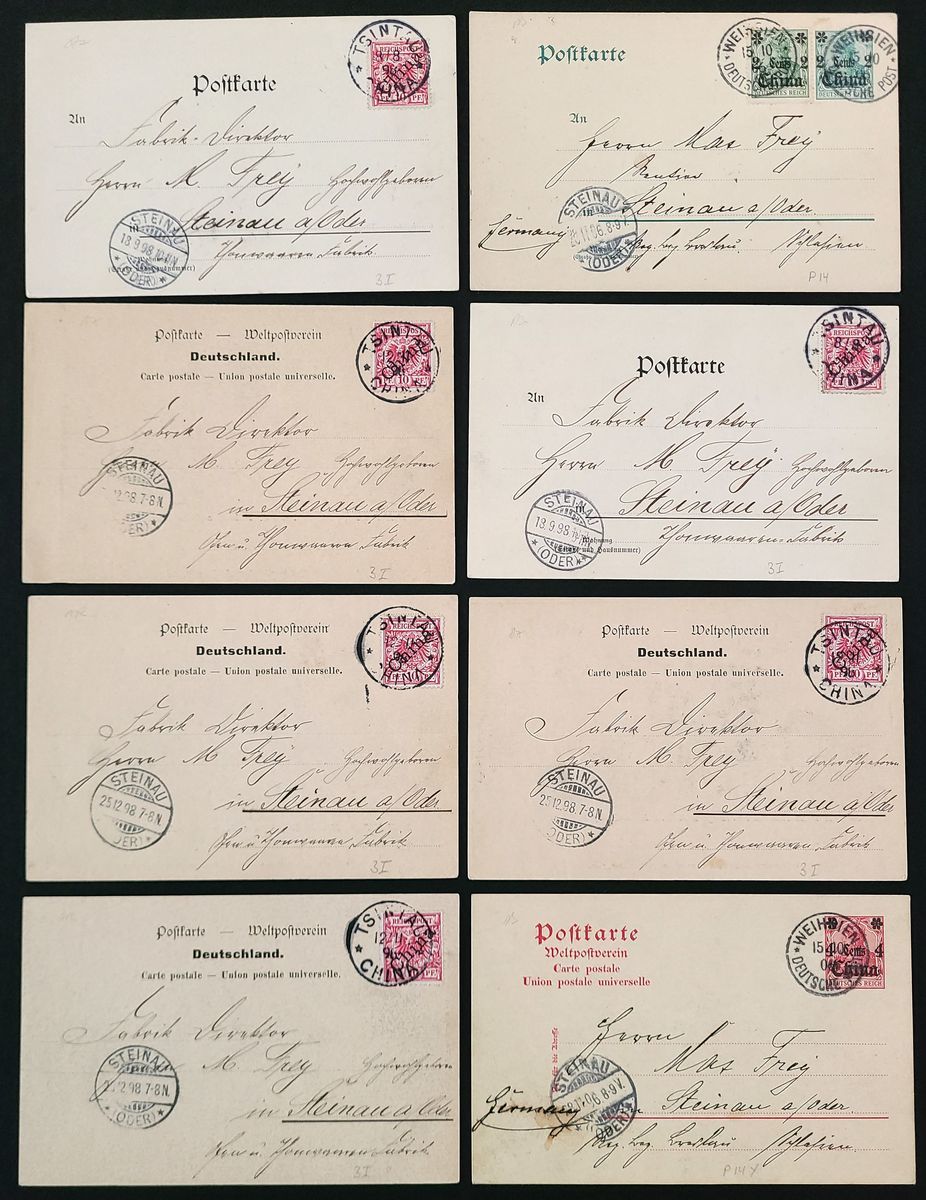 Postkarte
TSINTAU
8/8
CHINA
REICHSPOST
China
An
Fabrik-Direktor
Herrn M. Frey Hochwohlgeboren
Steinau a/Oder
Thonwaaren Fabrik
STEINAU
18.9.98
(ODER)
3 I
Postkarte
WEIHSIEN
15 10
DEUTSCHE POST
2 Cents 2
China
DEUTSCHES REICH
An
Herrn Max Frey
Rentier
Steinau a/Oder
Germany Reg. Bez. Breslau Schlesien
STEINAU
11.06.8-9V.
(ODER)
P14
Postkarte — Weltpostverein
Deutschland.
Carte postale — Union postale universelle.
TSINTAU
CHINA
REICHSPOST
China
10
Fabrik Direktor
M. Frey Hochwohlgeboren
in Steinau a/Oder
Ofen u Thonwaaren Fabrik
STEINAU
12.98.7-8N.
3 I
Postkarte
TSINTAU
8/8
CHINA
China
An
Fabrik Direktor
Herrn M. Frey Hochwohlgeboren
Steinau a/Oder
Thonwaaren-Fabrik
Wohnung
(Straße und Hausnummer)
STEINAU
18.9.98
(ODER)
3 I
Postkarte — Weltpostverein
Deutschland.
Carte postale — Union postale universelle.
TSINTAU
CHINA
China
Fabrik Direktor
Herrn M. Frey Hochwohlgeboren
in Steinau a/Oder
Ofen u Thonwaaren Fabrik
STEINAU
25.12.98.7-8N.
(ODER)
3 I
Postkarte — Weltpostverein
Deutschland.
Carte postale — Union postale universelle.
TSINTAU
CHINA
China
Fabrik Direktor
Herrn M. Frey Hochwohlgeboren
in Steinau a/Oder
Ofen u Thonwaaren Fabrik
STEINAU
25.12.98.7-8N.
(ODER)
3 I
Postkarte — Weltpostverein
Deutschland.
Carte postale — Union postale universelle.
TSINTAU
12/11
CHINA
REICHSPOST
China
Fabrik Direktor
M. Frey Hochwohlgeboren
in Steinau a/Oder
Ofen u Thonwaaren Fabrik
STEINAU
12.98 7-8N.
(ODER)
3 I
Postkarte
Weltpostverein
Carte postale
Union postale universelle
WEIHSIEN
15 10
DEUTSCHE
4 Cents 4
China
DEUTSCHES REICH
Herrn
Max Frey
Germany Steinau a/Oder
Reg. Bez. Breslau Schlesien
STEINAU
11.06.8-9V.
(ODER)
P14y